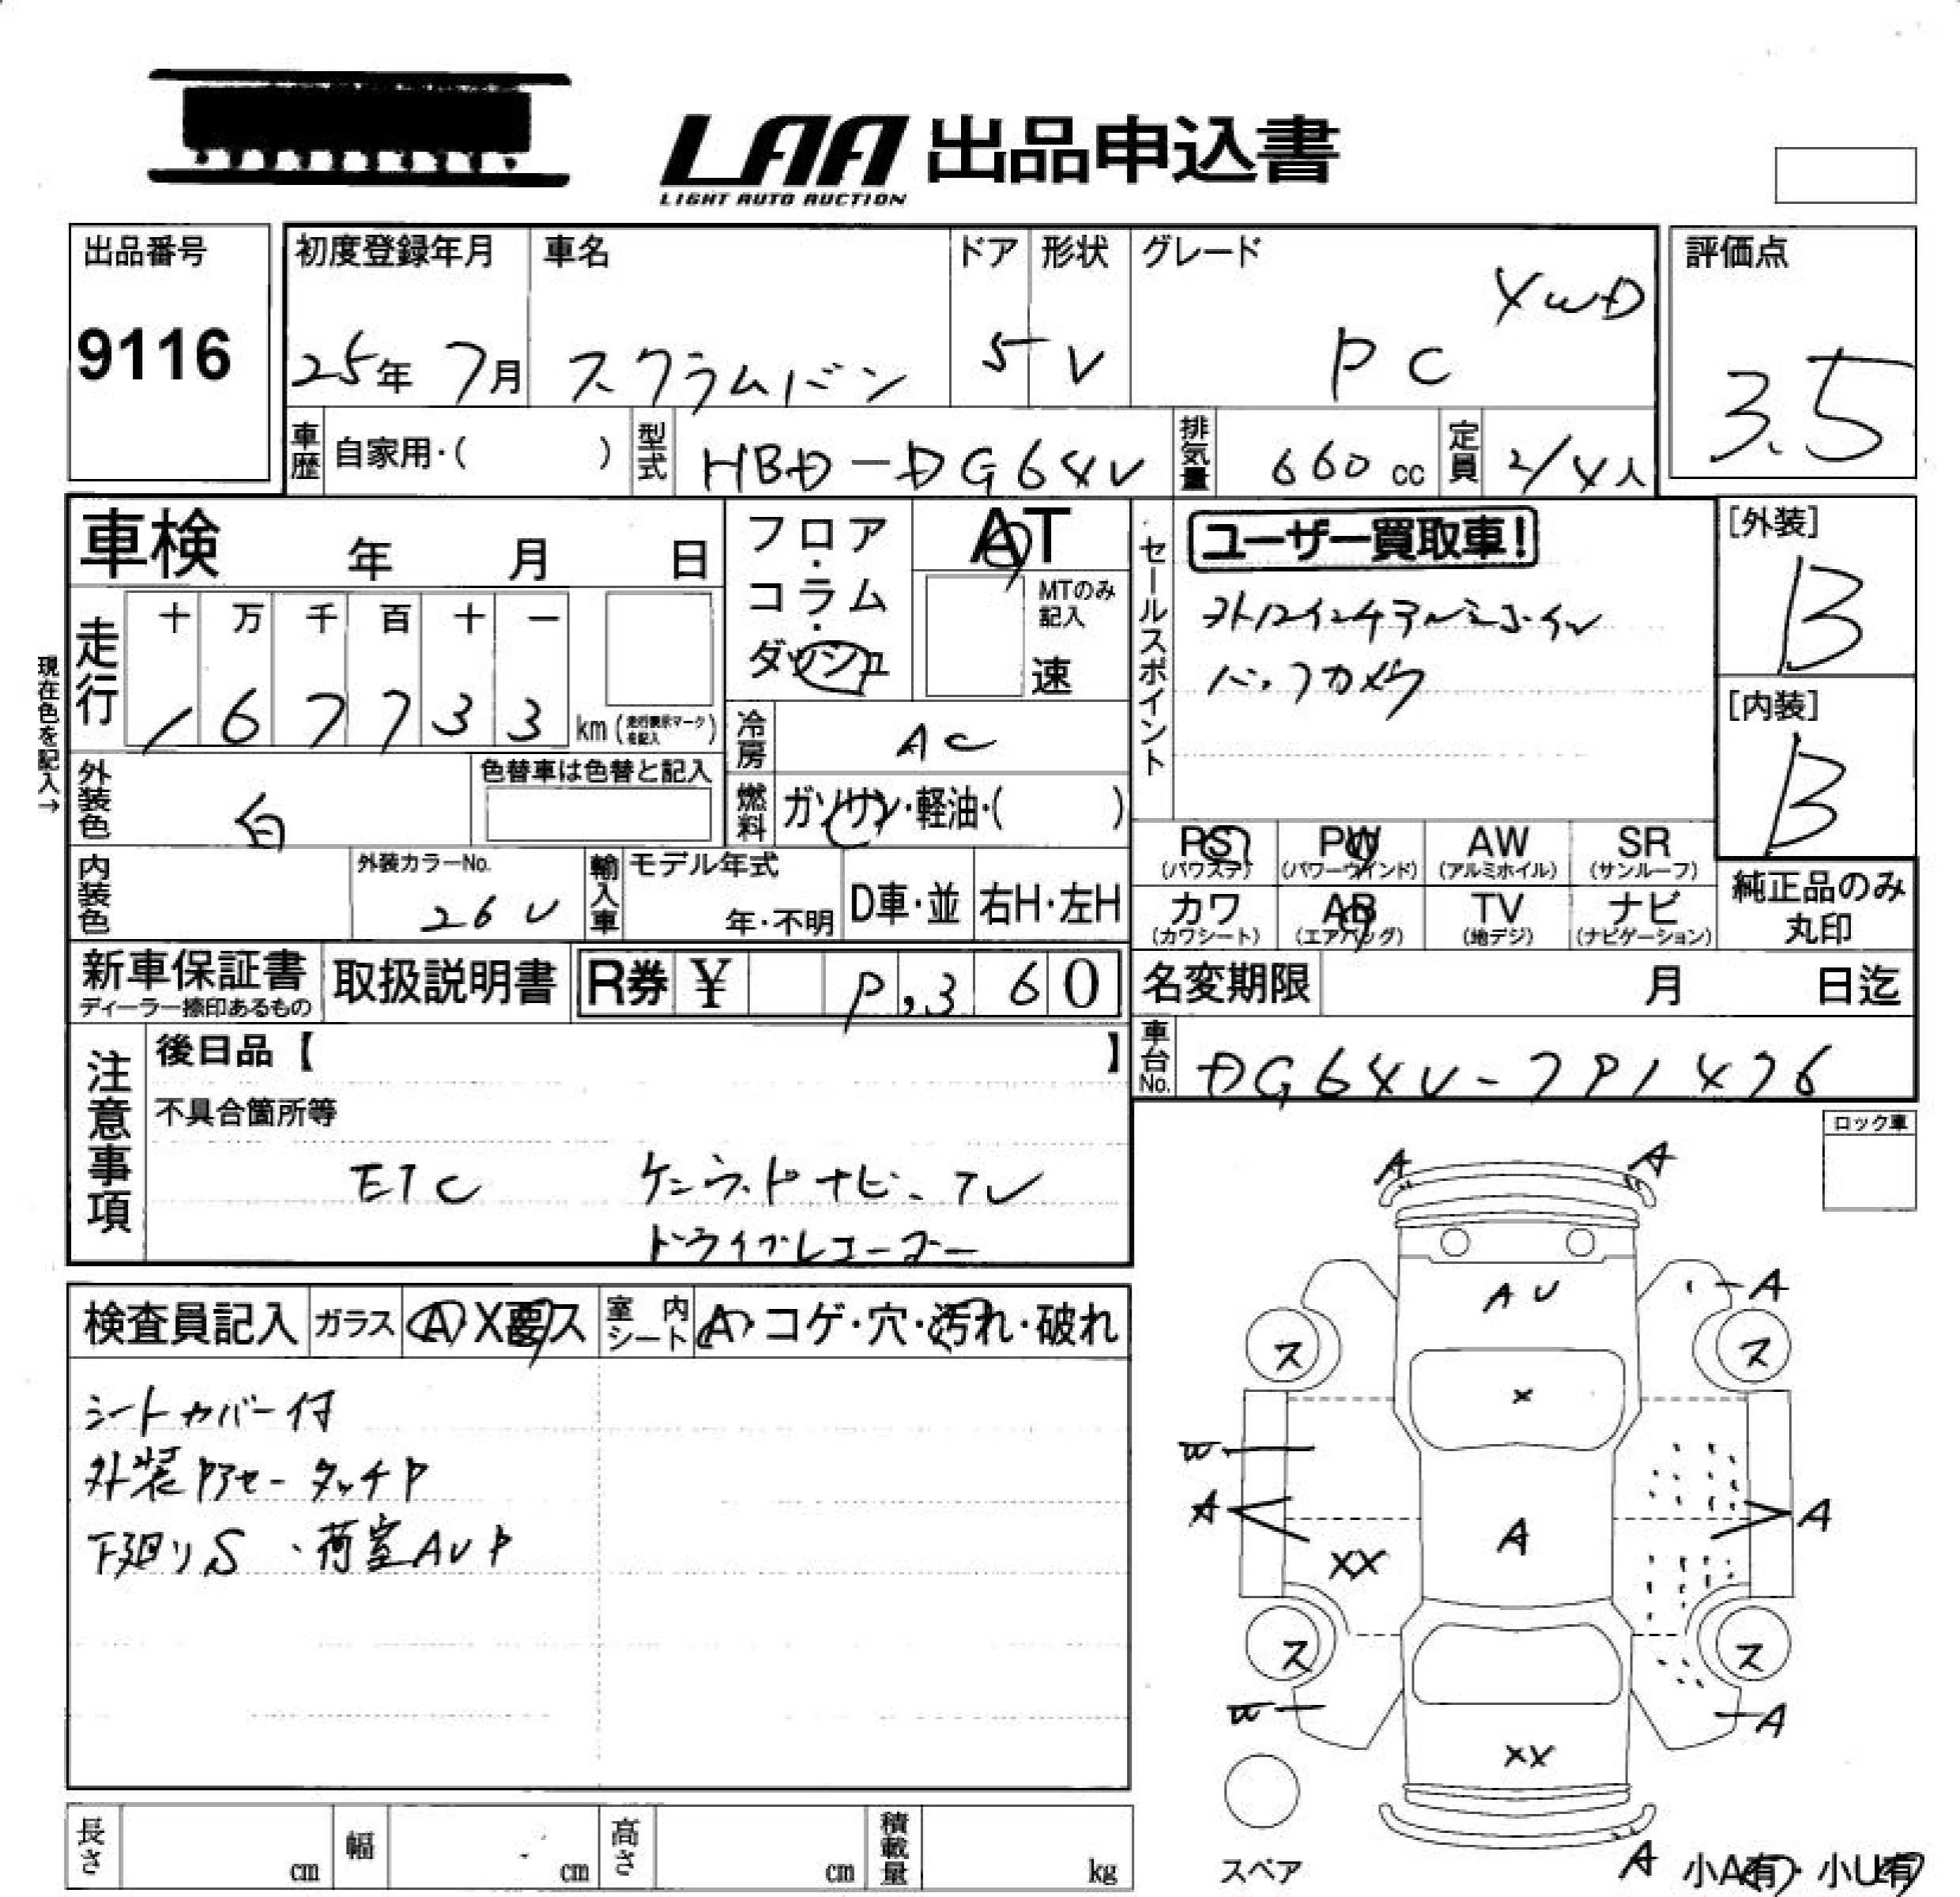 LAA 出品申込書
LIGHT AUTO AUCTION
出品番号
9116
初度登録年月
25年 7月
車名
スクラムバン
ドア
5
形状
V
グレード
PC 4WD
評価点
3.5
車歴 自家用・( )
型式 HBD-DG64V
排気量 660 cc
定員 2/4人
車検 年 月 日
フロア・コラム・ダッシュ
AT
MTのみ記入
速
セールスポイント
ユーザー買取車!
外12インチアルミ3.イン
バックカメラ
[外装]
B
[内装]
B
現在色を記入→
走行
十 万 千 百 十 一
1 6 7 7 3 3 km (走行表示マーク を記入)
冷房 AC
外装色 白
色替車は色替と記入
燃料 ガソリン・軽油・( )
PS (パワステ)
PW (パワーウインド)
AW (アルミホイル)
SR (サンルーフ)
カワ (カワシート)
AB (エアバッグ)
TV (地デジ)
ナビ (ナビゲーション)
純正品のみ
丸印
内装色
外装カラーNo.
26U
輸入車
モデル年式
年・不明
D車・並
右H・左H
新車保証書
ディーラー捺印あるもの
取扱説明書
R券 ¥ 8,360
名変期限 月 日迄
車台No. DG64V-781476
注意事項
後日品【 】
不具合箇所等
ETC ケンウッドナビ、TV
ドライブレコーダー
ロック車
検査員記入
ガラス A X要ス
室内シート A・コゲ・穴・汚れ・破れ
シートカバー付
外装PアセータッチP
下廻りS、荷室AUP
A A
A U
A
ス ス
X
W
A A
A
XX
ス ス
W
A
XX
スペア
A 小A有・小U有
長さ cm
幅 cm
高さ cm
積載量 kg